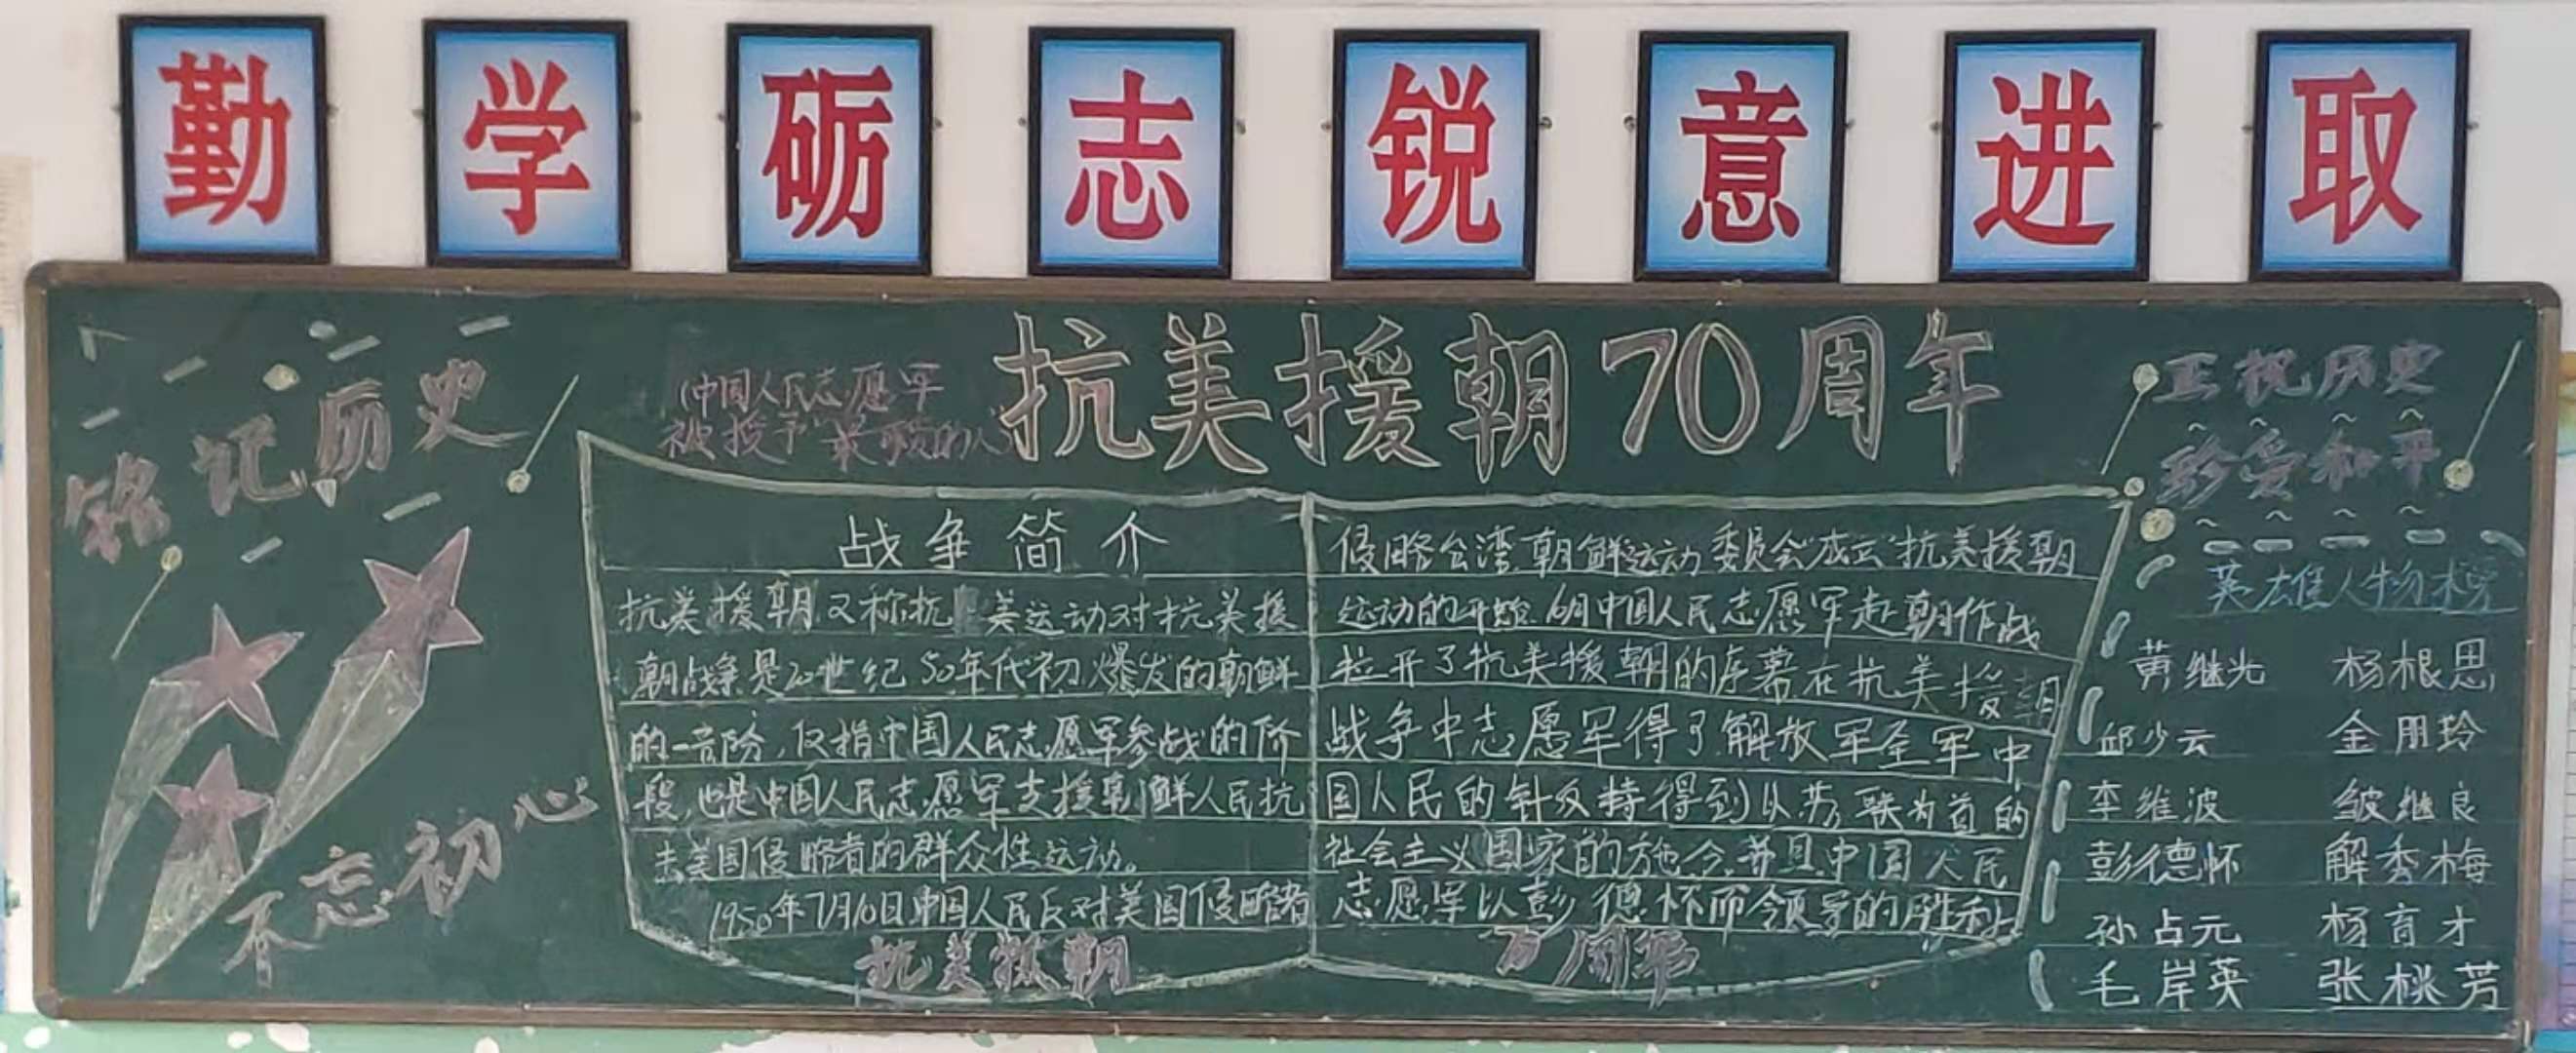 勤学砺志锐意进取
抗美援朝70周年
(中国人民志愿军
被授予"最可爱的人")
铭记历史
不忘初心
战争简介
抗美援朝又称抗美运动对抗美援
朝战争是20世纪50年代初爆发的朝鲜
的一部分,仅指中国人民志愿军参战的阶
段,也是中国人民志愿军支援朝鲜人民抗
击美国侵略者的群众性运动。
1950年7月10日中国人民反对美国侵略者
抗美援朝
侵略台湾朝鲜运动委员会"成立"抗美援朝
运动的开始.中国人民志愿军赴朝作战
拉开了抗美援朝的序幕在抗美援朝
战争中志愿军得了解放军全军中
国人民的针反特得到以苏联为首的
社会主义国家的施令并且中国人民
志愿军以彭德怀而领导的胜利
周年
正视历史
珍爱和平
英雄人物榜
黄继光 杨根思
邱少云 金朋玲
李维波 皱继良
彭德怀 解秀梅
孙占元 杨育才
毛岸英 张桃芳